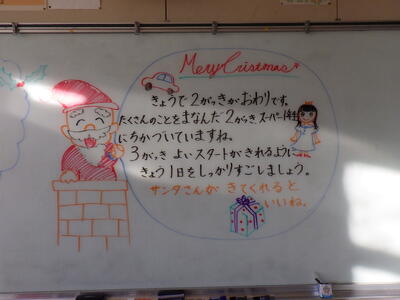 Merry Cristmas
きょうで2がっきがおわりです。
たくさんのことをまなんだ2がっき スーパー1年生
にちかづいていますね。
3がっき よいスタートがきれるように
きょう1日をしっかりすごしましょう。
サンタさんが きてくれると
いいね。